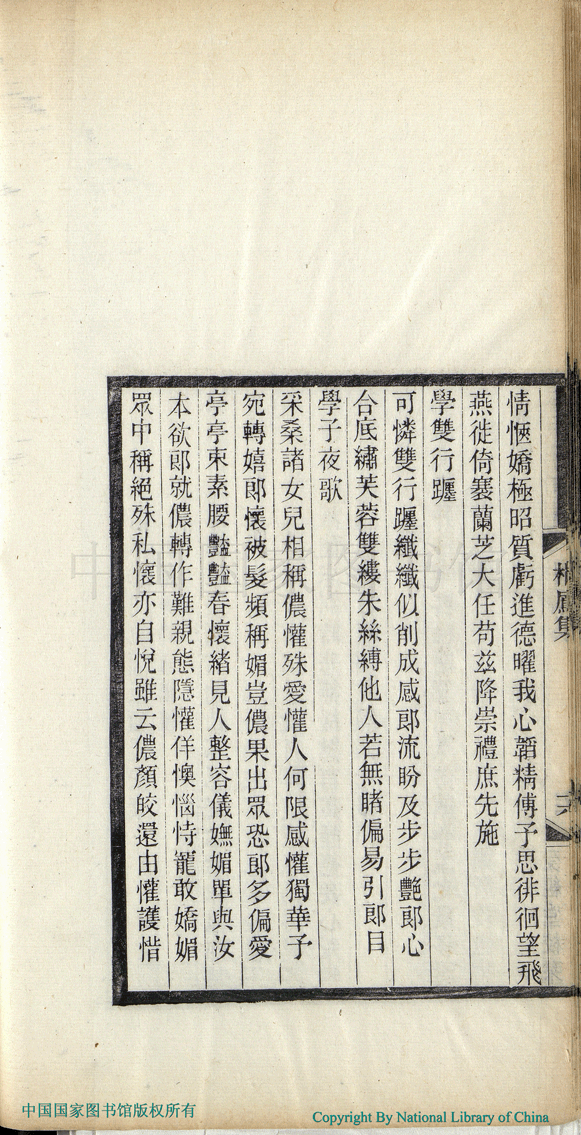 情愜嬌極昭質虧進德曜我心韜精傅予思徘徊望飛
燕徙倚褰蘭芝大任苟玆降崇禮庶先施
學雙行躔
可憐雙行躔纖纖似削成感郎流盼及步步艷郎心
合底繡芙蓉雙縷朱絲縛他人若無睹偏易引郎目
學子夜歌
采桑諸女兒相稱儂懽殊愛懽人何限感懽獨華予
宛轉嬉郎懷被髮頻稱媚豈儂果出眾恐郎多偏愛
亭亭束素腰豔豔春懷緒見人整容儀嫵媚單與汝
本欲郎就儂轉作難親態隱懽佯懊惱恃寵敢嬌媚
眾中稱絕殊私懷亦自悅雖云儂顏皎還由懽護惜
集
六
中国国家图书馆
中国国家图书馆版权所有
Copyright By National Library of China